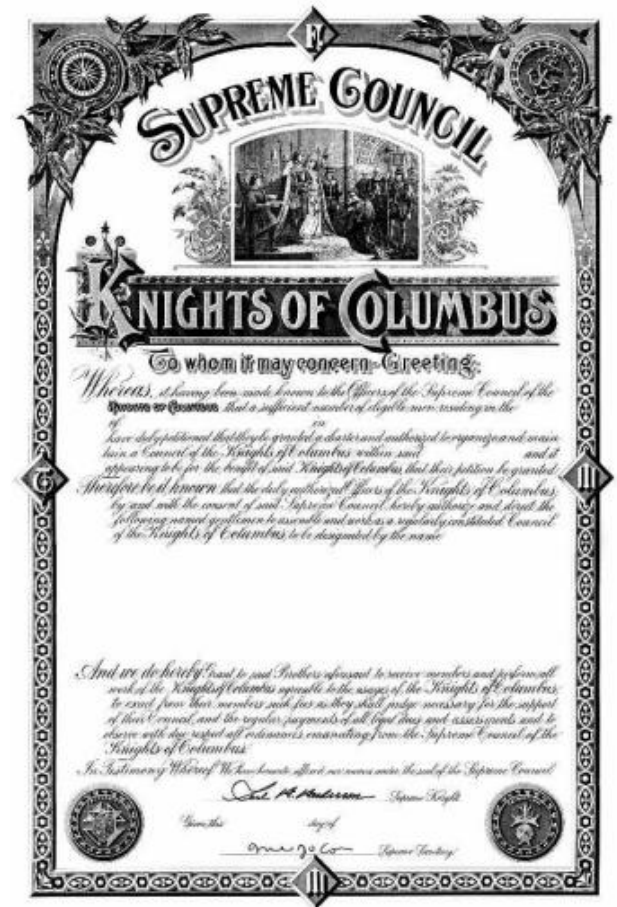 F
SUPREME COUNCIL
KNIGHTS OF COLUMBUS
To whom it may concern - Greeting:
Whereas, it having been made known to the Officers of the Supreme Council of the
Knights of Columbus that a sufficient number of eligible men residing in the
of in
have duly petitioned that they be granted a charter and authorized to organize and main
tain a Council of the Knights of Columbus within said and it
appearing to be for the benefit of said Knights of Columbus, that their petition be granted
Therefore be it known that the duly authorized Officers of the Knights of Columbus,
by and with the consent of said Supreme Council hereby authorize and direct the
following named gentlemen to assemble and work as a regularly constituted Council
of the Knights of Columbus to be designated by the name
And we do hereby Grant to said Brothers aforesaid to receive members and perform all
work of the Knights of Columbus agreeable to the usages of the Knights of Columbus,
to exact from their members such fees as they shall judge necessary for the support
of their Council, and the regular payments of all legal dues and assessments and to
observe with due respect all ordinances emanating from the Supreme Council of the
Knights of Columbus.
In Testimony Whereof We have hereunto affixed our names under the seal of the Supreme Council
Supreme Knight
Given this day of
Supreme Secretary